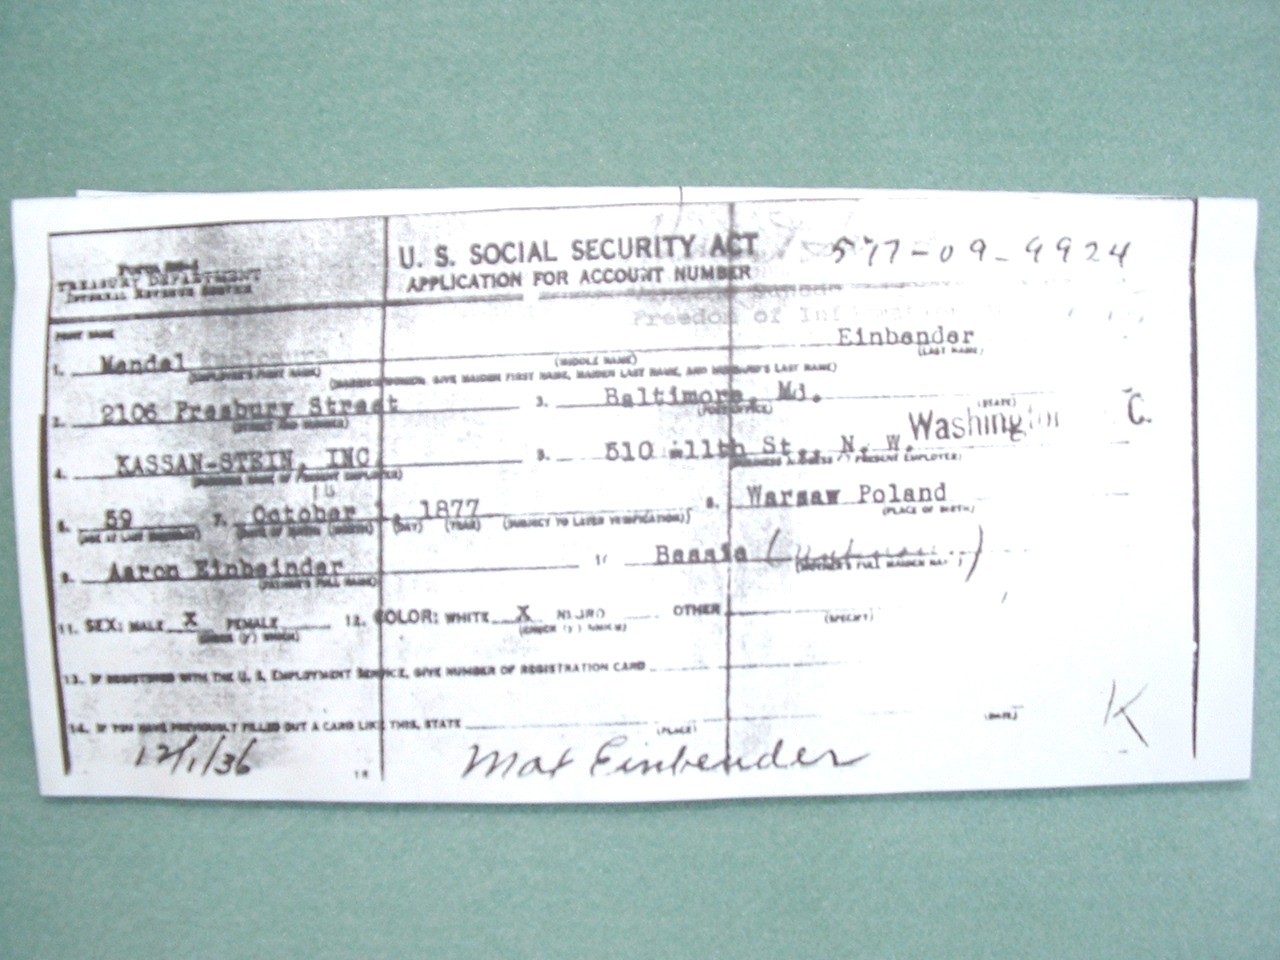 Form SS-5
TREASURY DEPARTMENT
INTERNAL REVENUE SERVICE
U. S. SOCIAL SECURITY ACT
APPLICATION FOR ACCOUNT NUMBER
577-09-9924
Freedom of
PRINT NAME
1. Mendel Einbender
(EMPLOYEE'S FIRST NAME) (MIDDLE NAME) (LAST NAME)
(MARRIED WOMEN: GIVE MAIDEN FIRST NAME, MAIDEN LAST NAME, AND HUSBAND'S LAST NAME)
2. 2106 Presbury Street 3. Baltimore, Md.
(STREET AND NUMBER) (POST OFFICE) (STATE)
4. KASSAN-STEIN, INC 5. 510 11th St., N. W. Washington C.
(BUSINESS NAME OF PRESENT EMPLOYER) (BUSINESS ADDRESS OF PRESENT EMPLOYER)
6. 59 7. October 1877 8. Warsaw Poland
(AGE AT LAST BIRTHDAY) (DATE OF BIRTH: (MONTH) (DAY) (YEAR) (SUBJECT TO LATER VERIFICATION)) (PLACE OF BIRTH)
9. Aaron Einbeinder Bessie
(FATHER'S FULL NAME) (MOTHER'S FULL MAIDEN NAME)
11. SEX: MALE X FEMALE 12. COLOR: WHITE X NEGRO OTHER
(CHECK (√) WHICH) (CHECK (√) WHICH) (SPECIFY)
13. IF REGISTERED WITH THE U. S. EMPLOYMENT SERVICE, GIVE NUMBER OF REGISTRATION CARD
14. IF YOU HAVE PREVIOUSLY FILLED OUT A CARD LIKE THIS, STATE
(PLACE) (DATE)
K
12/1/36 Max Einbender